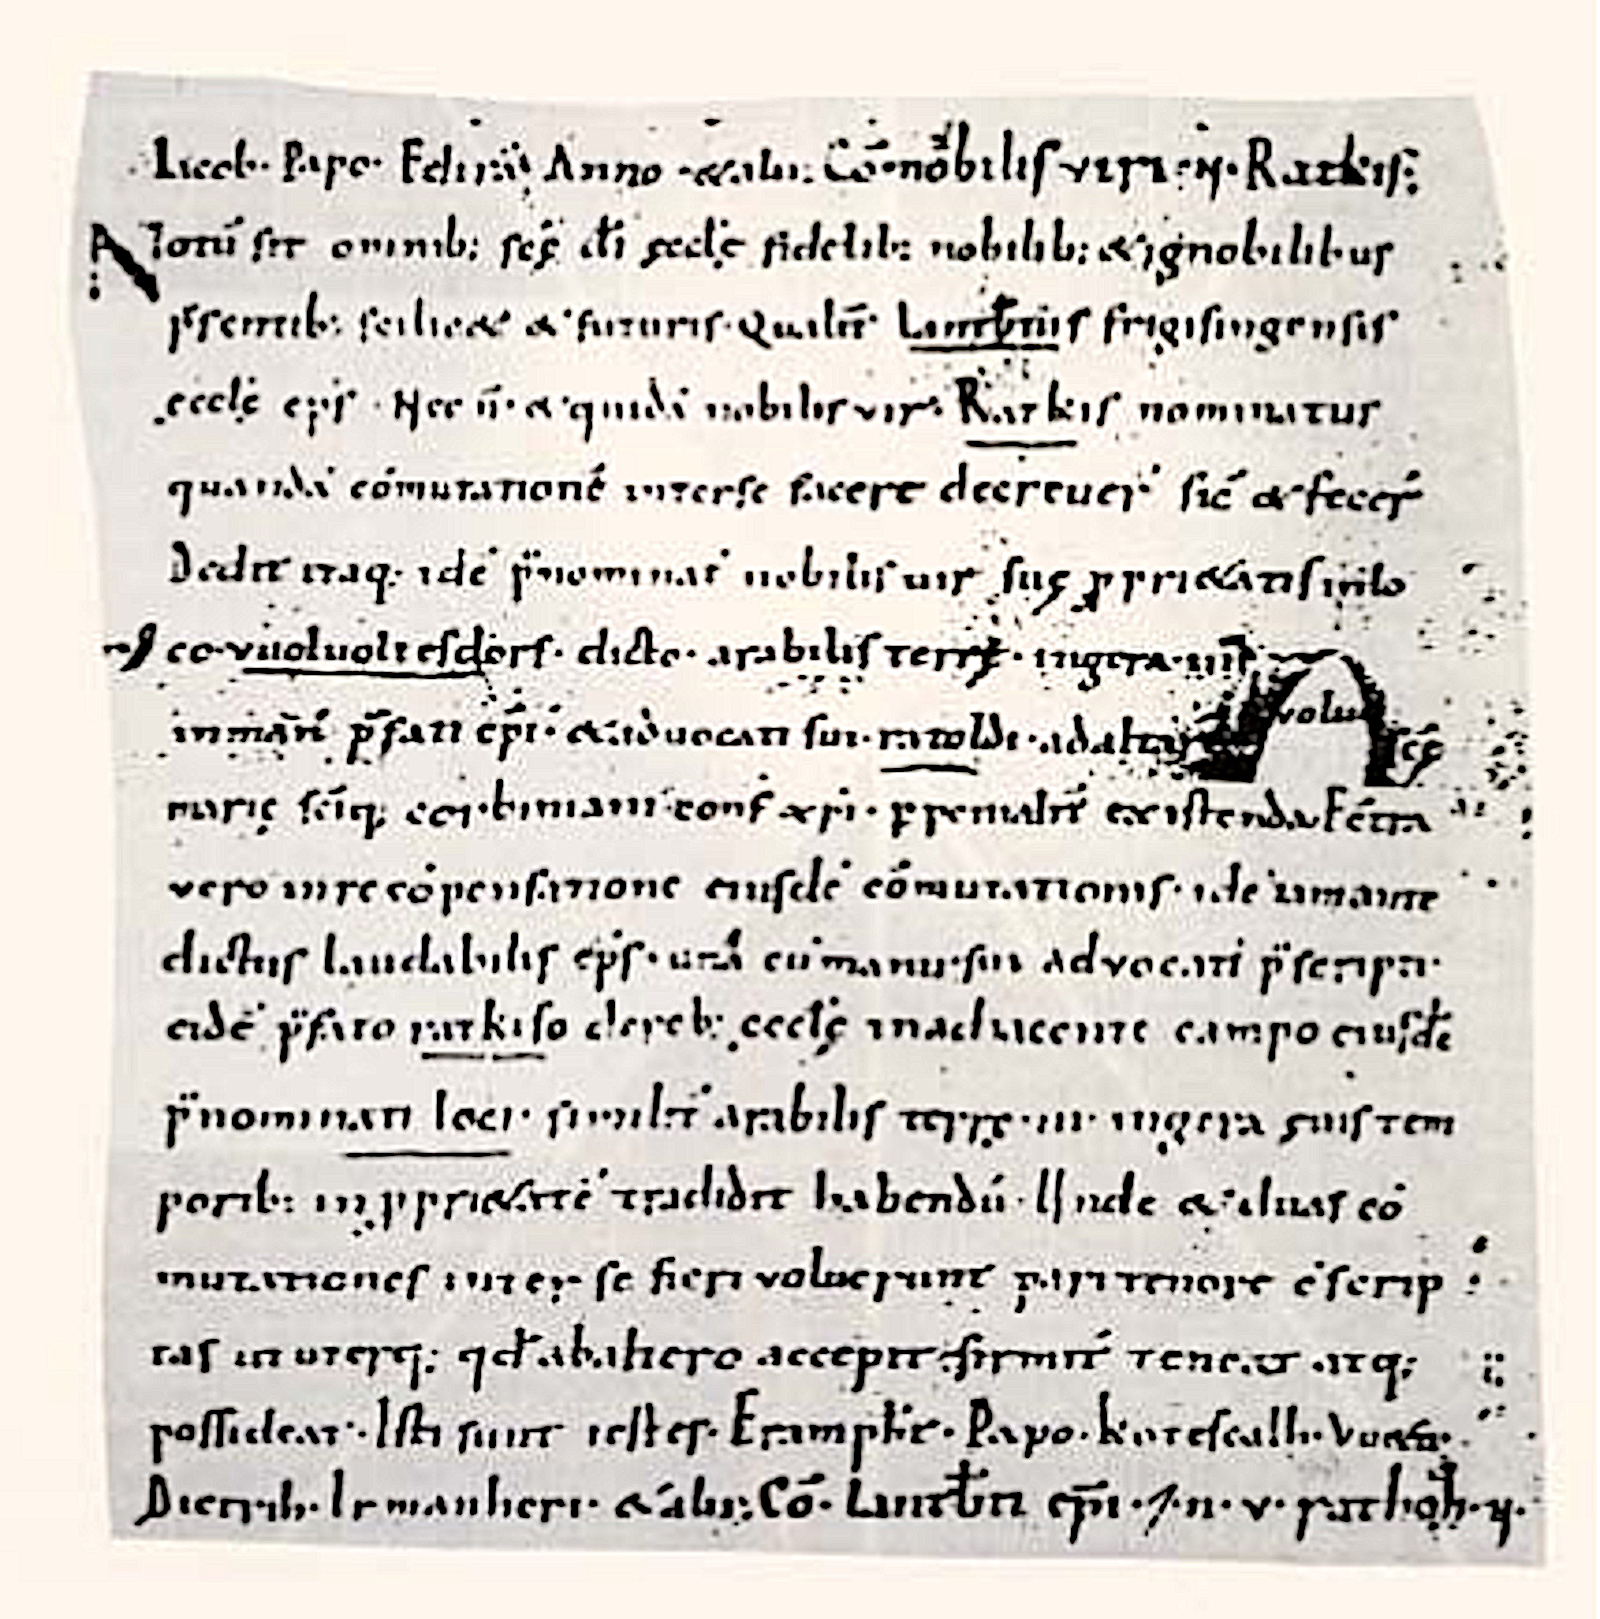 Liecb· Papo· Anno· &alii: Cō·nobilis viri· Ratkis:
Notū sit omnib; scę dī ęcclę fidelib: nobilib; & ignobilibus
p̄sentib: scilic& & futuris· Qualit̄ Lantb̄tus frigisingensis
ęcclę ep̄s · Nec n̄ & quidā nobilis vir· Ratkis nominatus
quandā cōmutationē inter se facere decreuer̄ sic̄ & fecer̄
Dedit itaq; idē p̄nominat̄ nobilis uir suę p̄pri&atis in lo
co·vuoluoltesdorf· dicto· arabilis terrę· iugera·iiii
in man̄ p̄fati ep̄i· & aduocati sui·ratoldi·ad altare scę
marię scīq; corbiniani conf̄ xp̄i· p̄petualit̄ existenda· Ec̄tra
vero in recōpensatione eiusdē cōmutationis· idē
dictus laudabilis ep̄s· unā cū manu·sui advocati p̄scripti·
eidē p̄fato ratkiso de reb; ęcclę in adiacente campo eiusdē
p̄nominati loci· similit̄ arabilis terrę·iii· iugera suis tem
porib: in p̄pri&atē tradidit habendū· Unde & duas cō
mutationes inter se fieri voluerunt pari tenore cōscrip
tas ut uterq; qd̄ ab altero accepit·firmit̄ teneat atq;
possideat· Isti sunt testes· Papo· kotescalh·
Dietrih· Irmanheri· &alii: Cō· Lantb̄ti ep̄i· n· v· rathoh·